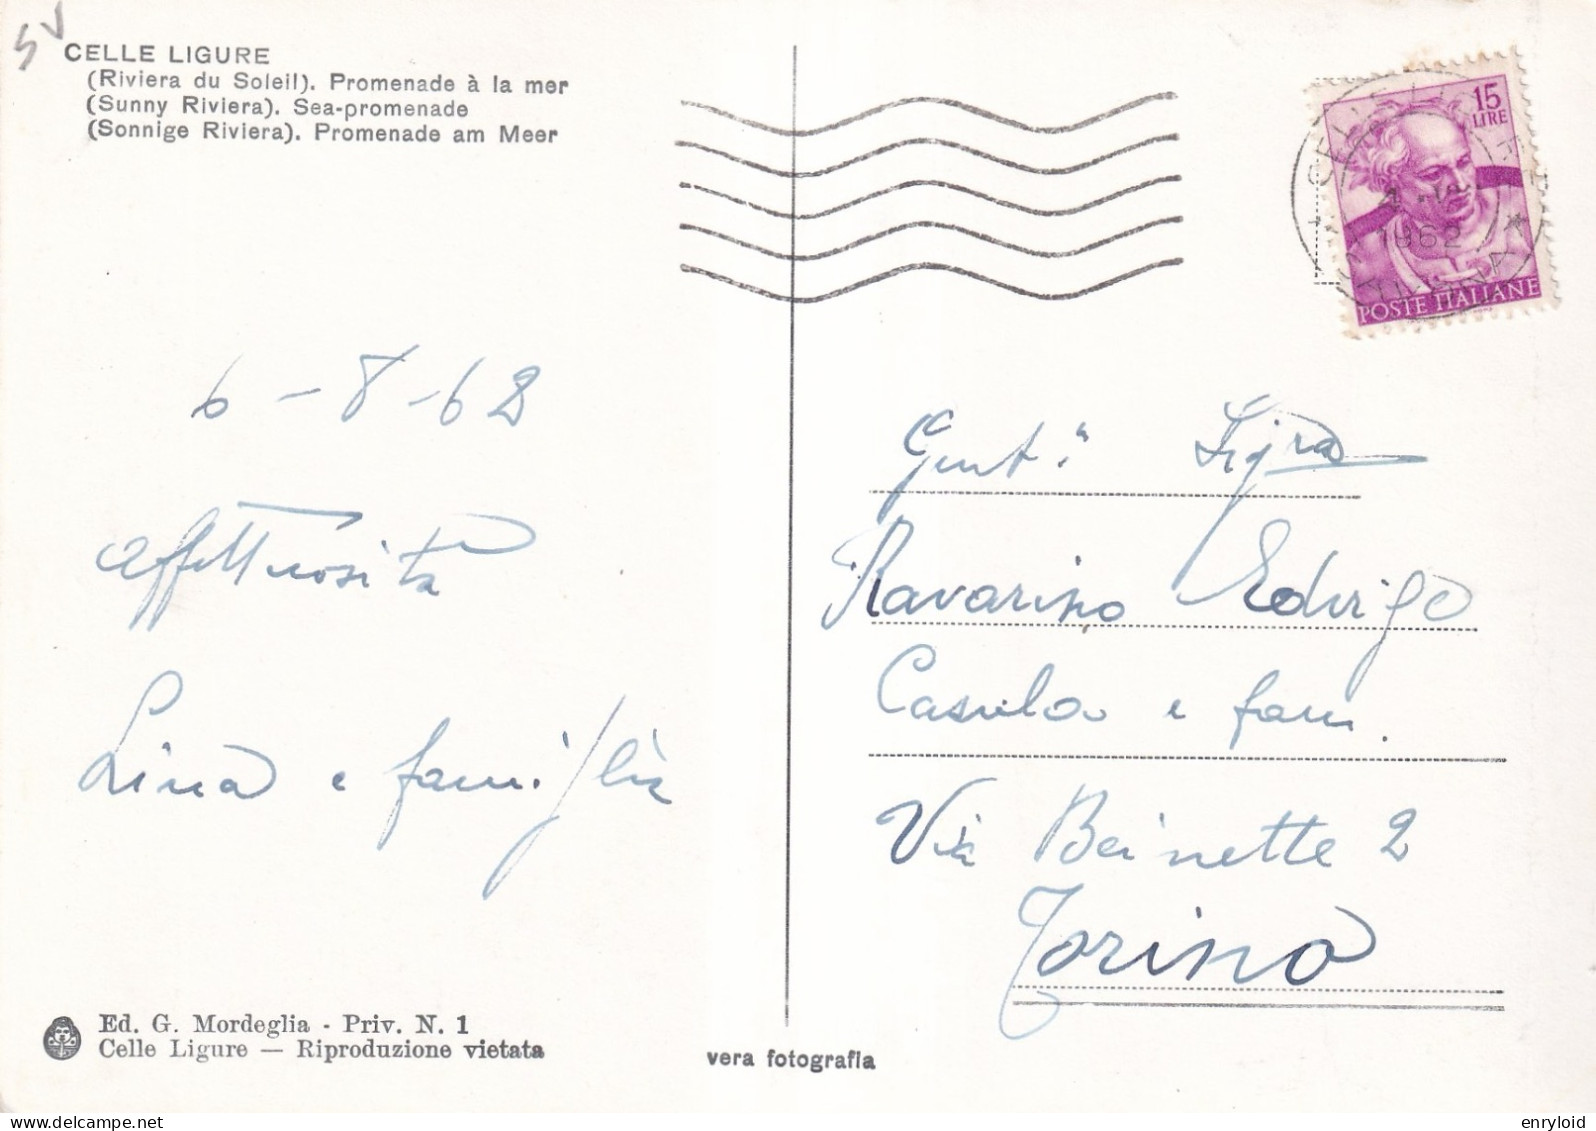 SV
CELLE LIGURE
(Riviera du Soleil). Promenade à la mer
(Sunny Riviera). Sea-promenade
(Sonnige Riviera). Promenade am Meer
15
LIRE
1962
POSTE ITALIANE
6-8-62
Affettuosità
Lina e famiglia
Gent.a Sig.ra
Ravarino Edvige
Casula e fam.
Via Beinette 2
Torino
Ed. G. Mordeglia - Priv. N. 1
Celle Ligure — Riproduzione vietata
vera fotografia
enryloid